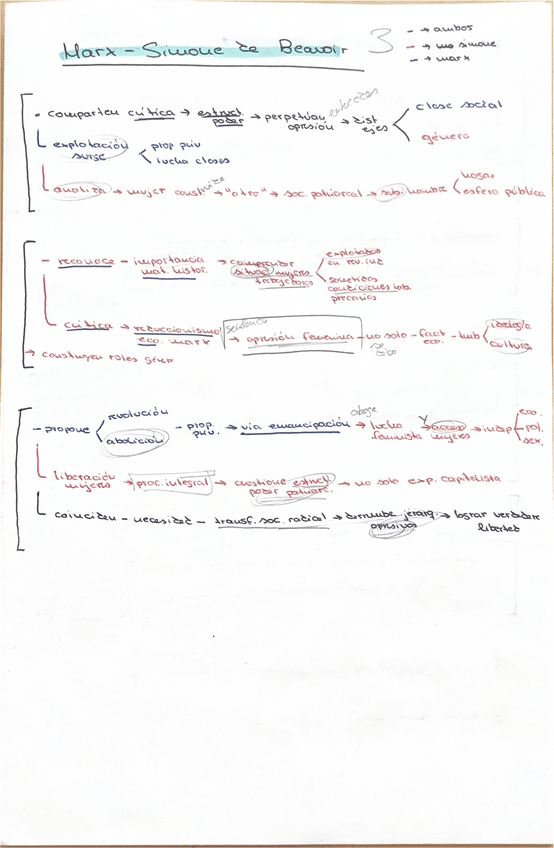 Marx - Simone de Beauvoir 3 - → ambos
- → simone
- → marx
• comparten crítica → estruct. poder → perpetúan opresión → dist ejes < clase social
género
explotación surge < prop priv
lucha clases
analiza → mujer const. → "otro" → soc. patriarcal → sub. hombre < hogar
esfera pública
- reconoce - importancia mat. histor. → comprender situac mujeres trabajadoras < explotadas en rev. ind
sometidas condiciones lab. precarias
crítica → reduccionismo eco. marx → opresión femenina - no solo - fact eco. - tmb < ideología
cultura
→ construyen roles géner
- propone < revolución
abolición - prop. priv. → vía emancipación → lucha feminista y → acceso mujeres → indep < eco.
pol.
sex.
liberación mujeres → proc. integral → cuestione estruct. poder patriarc. → no solo exp. capitalista
coinciden - necesidad - transf. soc. radical → derrumbe jerarq. opresivas → lograr verdadera libertad